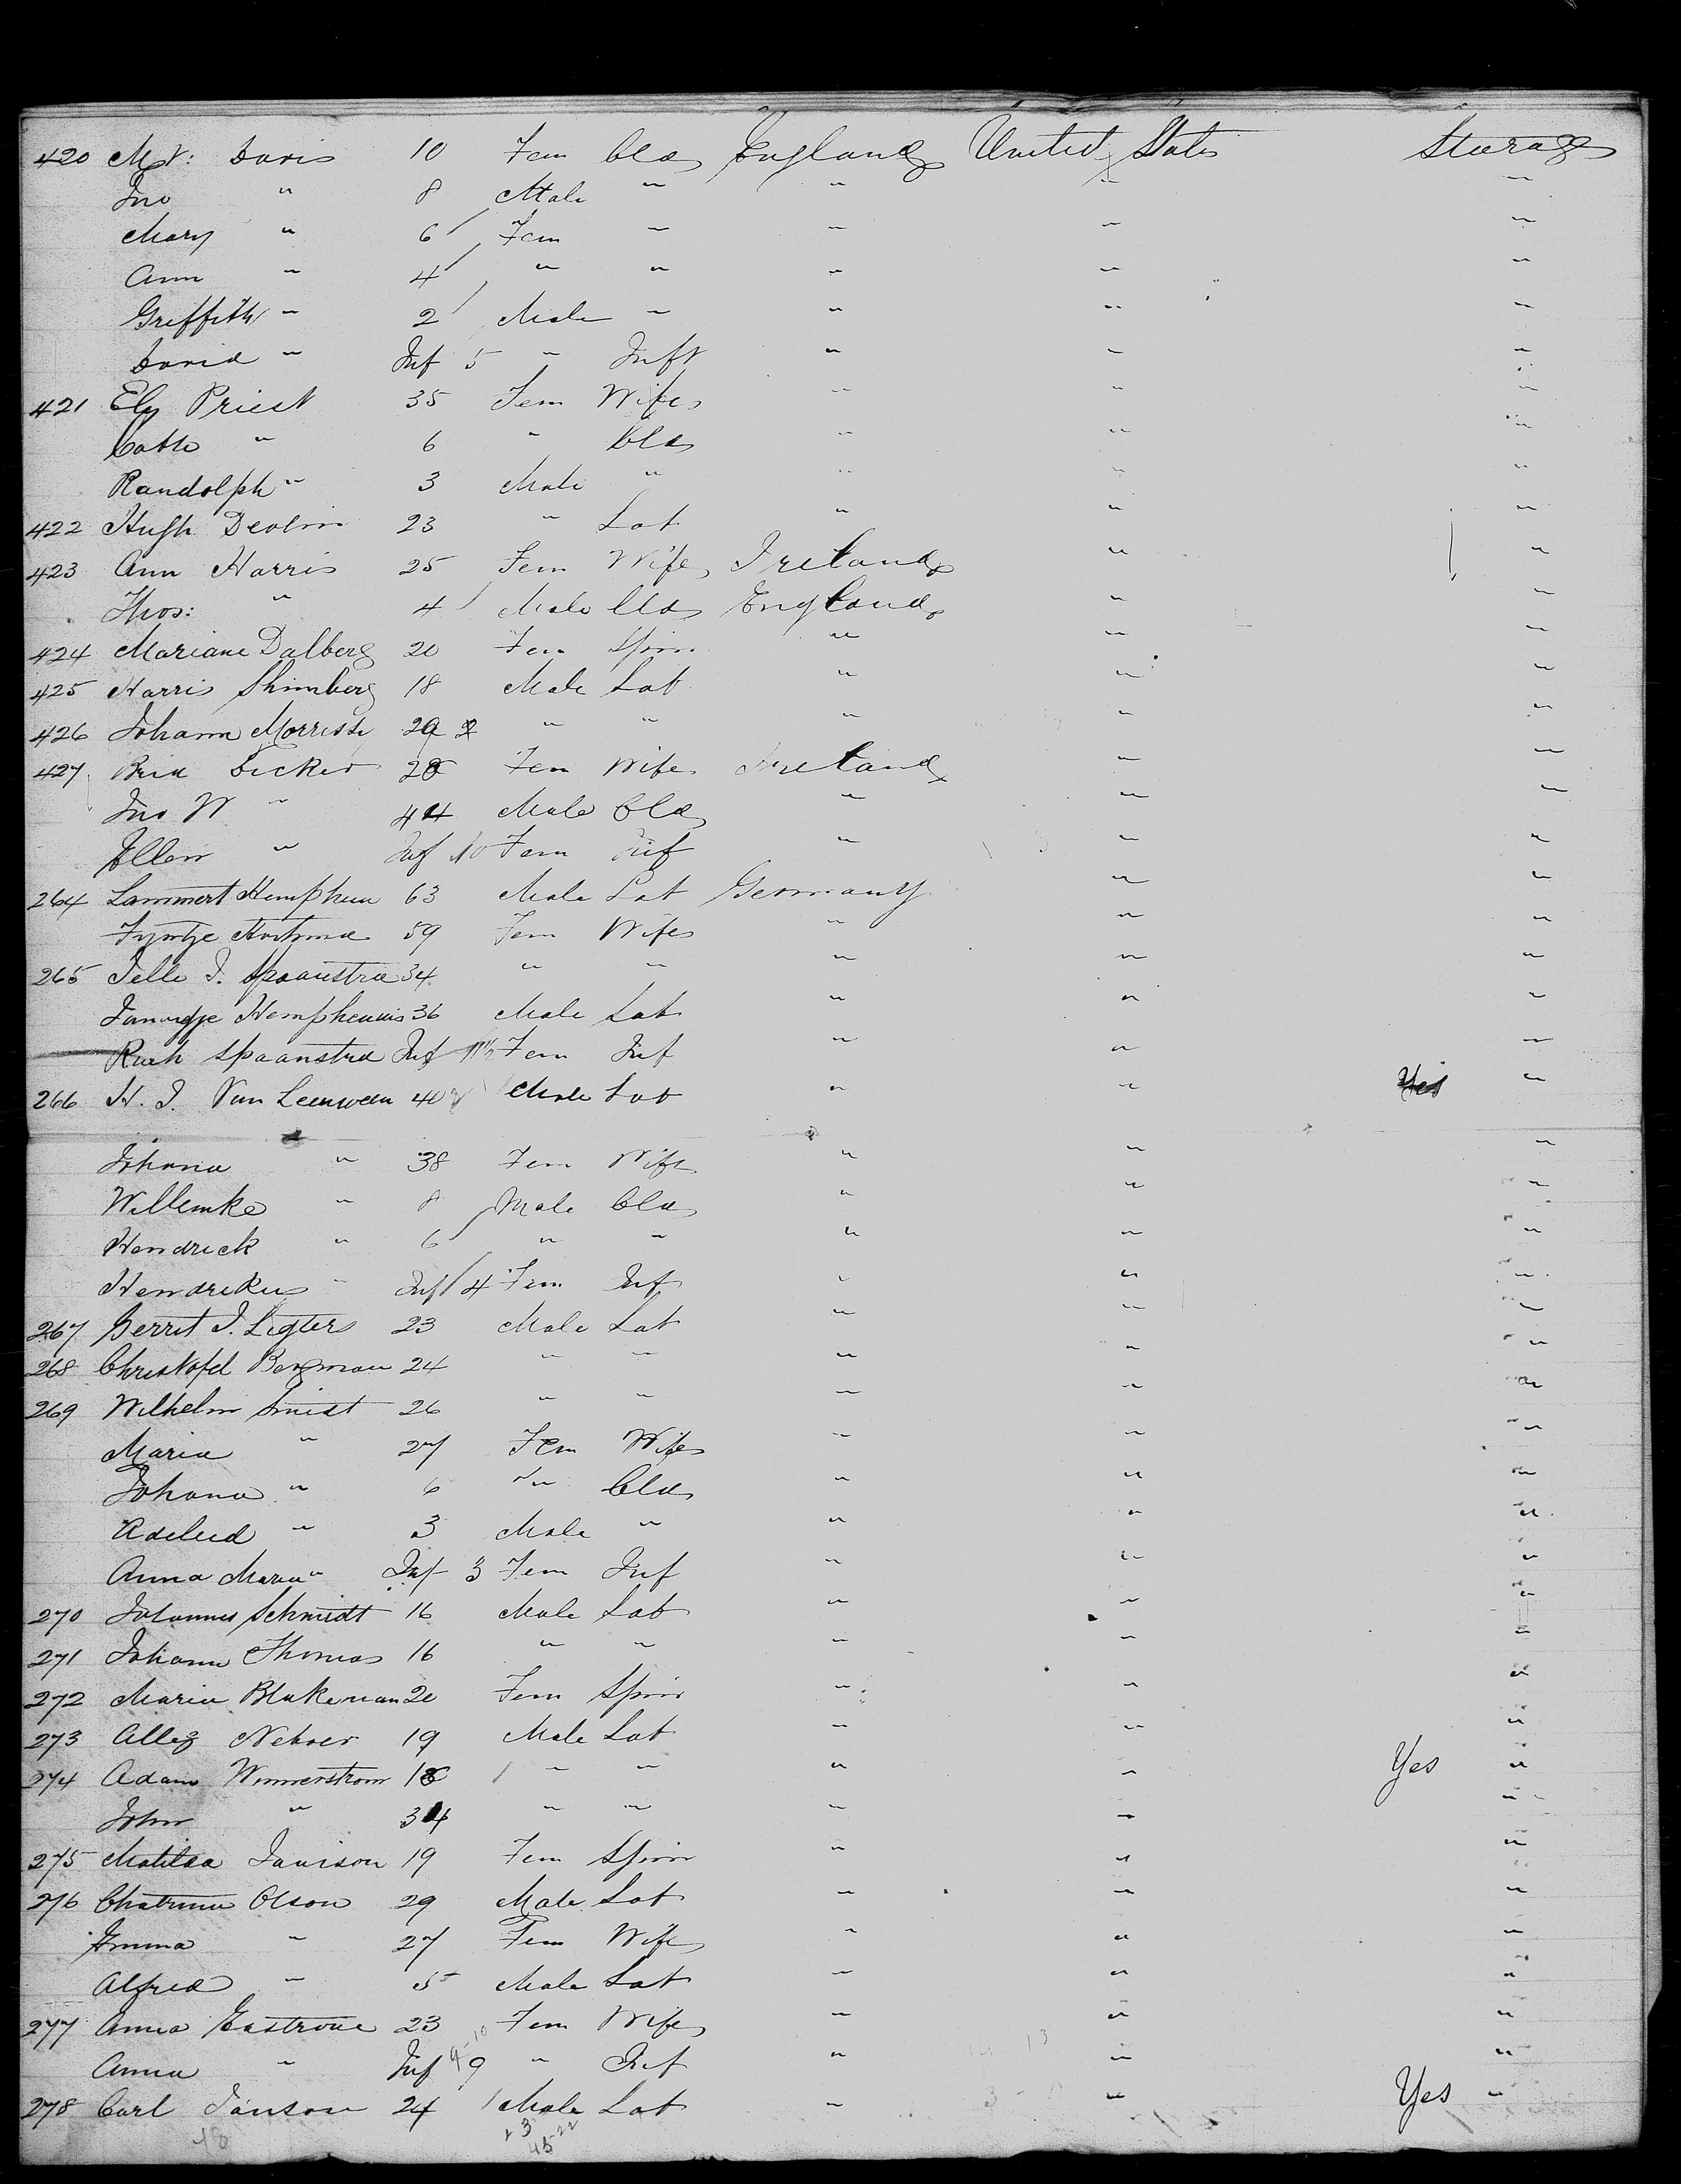 420 Mgt: Davis 10 Fem Cld England United States Steerage
Jno " 8 Male " " " "
Mary " 6 Fem " " " "
Ann " 4 " " " " "
Griffith " 2 Male " " " "
David " Inf 5 " Inft " " "
421 Elz Priest 35 Fem Wife " " "
Cath " 6 " Cld " " "
Randolph " 3 Male " " " "
422 Hugh Devlin 23 " Lab " " "
423 Ann Harris 25 Fem Wife Ireland " "
Thos: " 4 Male Cld England " "
424 Mariane Dalberg 20 Fem Spin " " "
425 Harris Shimberg 18 Male Lab " " "
426 Johann 29 " " " " "
427 28 Fem Wife Ireland " "
Jno W " 4 Male Cld " " "
Ellen " Inf 10 Fem Inf " " "
264 Lammert 63 Male Lab Germany " "
59 Fem Wife " " "
265 Jelle J. Spaanstra 34 " " " " "
Hemphenius 36 Male Lab " " "
Spaanstra Inf 11½ Fem Inf " " "
266 H. J. Van Leeuween 40 Male Lab " " Yes "
Johana " 38 Fem Wife " " "
Willemke " 8 Male Cld " " "
Hendrick " 6 " " " " "
Hendrikus " Inf 4 Fem Inf " " "
267 Gerrit J. Ligters 23 Male Lab " " "
268 Christofel Bergman 24 " " " " "
269 Wilhelm Smidt 26 " " " " "
Maria " 27 Fem Wife " " "
Johana " 6 " Cld " " "
Adeleid " 3 Male " " " "
Anna Maria " Inf 3 Fem Inf " " "
270 Johannes Schmidt 16 Male Lab " " "
271 Johann Thomas 16 " " " " "
272 Maria Blakeman 20 Fem Spin " " "
273 19 Male Lab " " "
274 Adam Wennerstrom 18 " " " " Yes "
John " 34 " " " " "
275 Matilda Janison 19 Fem Spin " " "
276 Olson 29 Male Lab " " "
Emma " 27 Fem Wife " " "
Alfred " 5 Male Lab " " "
277 Anna 23 Fem Wife " " "
Anna " Inf 9 " Inf " " "
278 Carl Janson 24 Male Lab " " Yes "